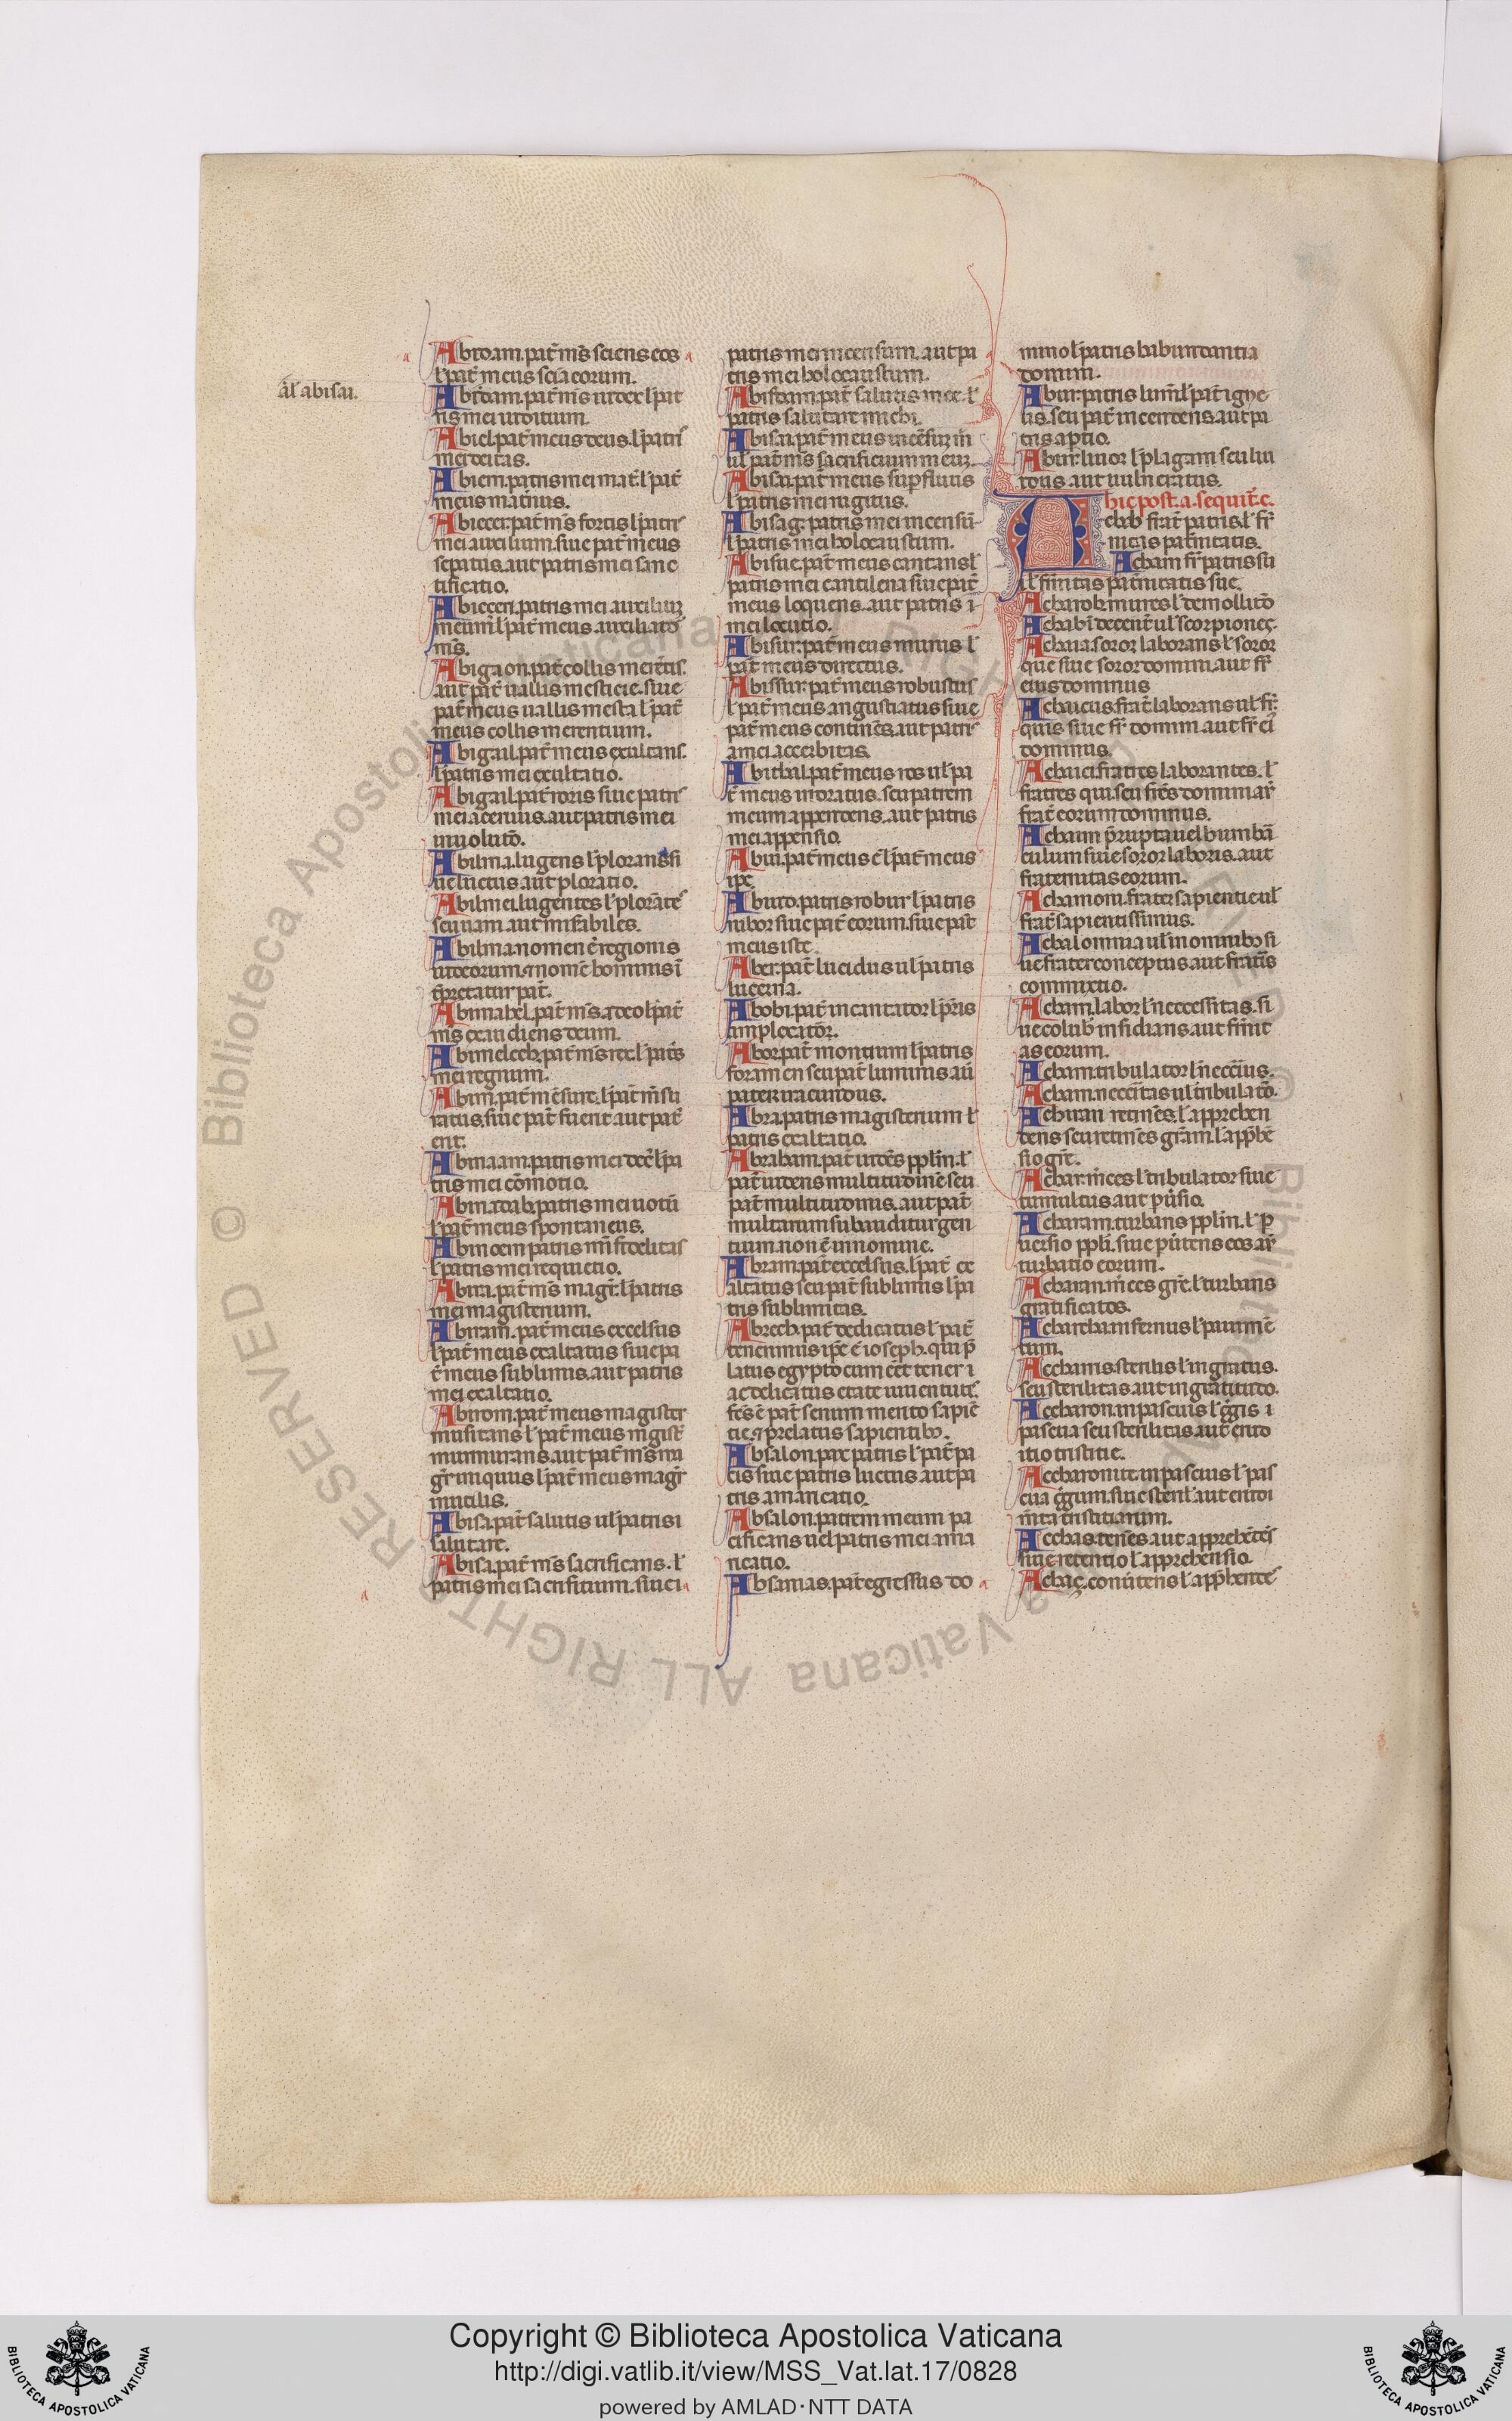 al' abisai.
Abidam. pat̃ m̃s sciens eos
l' pat̃ meus sc̃ia eorum.
Abidam. pat̃ m̃s iudex l' pat
ris mei iudicium.
Abiel. pat̃ meus deus. l' patris
mei deitas.
Abiem. patris mei mat̃. l' pat̃
meus mat̃nus.
Abiezer. pat̃ m̃s fortis l' patris
mei auxilium. siue pat̃ meus
sepatus. aut patris mei sanc
tificatio.
Abiezeri. patris mei auxiliuz
meum l' pat̃ meus auxiliatō
m̃s.
Abigaon. pat̃ collis merẽtis.
aut pat̃ uallis mesticie. siue
pat̃ meus uallis mesta l' pat̃
meus collis merentium.
Abigail. pat̃ meus exultans.
l' patris mei exultatio.
Abigail. pat̃ roris siue patris
mei aceruus. aut patris mei
inuolutõ.
Abilina. lugens l' plorans si
ue luctus aut ploratio.
Abilinei. lugentes l' plorãtes
seu uam. aut mis̃abiles.
Abilina nomen ẽ regionis
iudeorum. nomẽ hominis ĩ
t̃pretatur pat̃.
Abimahel. pat̃ m̃s. a deo l' pat̃
m̃s exaudiens deum.
Abimelech. pat̃ m̃s rex. l' pat̃s
mei regnum.
Abinaam. patris mei dec̃ l' pa
tris mei cõmotio.
Abinadab. patris mei uotũ
l' pat̃ meus spontaneus.
Abinoem patris mĩ fidelitas
l' patris mei requietio.
Abira. pat̃ m̃s magr̃. l' patris
mei magisterium.
Abiram. pat̃ meus excelsus
l' pat̃ meus exaltatus siue pa
t̃ meus sublimis. aut patris
mei exaltatio.
Abirom. pat̃ meus magister
musitans l' pat̃ meus mg̃ist̃
murmurans. aut pat̃ m̃s ma
gr̃ iniquus l' pat̃ meus magr̃
inutilis.
Abisa. pat̃ salutis ul' patris i
salutare.
Abisa. pat̃ m̃s sacrificans. l'
patris mei sacrificium. siue i
patris mei incensum. aut pa
tris mei holocaustum.
Abisdam. pat̃ salutis mee. l'
patris salutare michi.
Abisai. pat̃ meus incẽsuz m̃
ul' pat̃ m̃s sacrificium meuz
Abisai. pat̃ meus supfluus
l' patris mei rugitus.
Abisag. patris mei incensũ
l' patris mei holocaustum.
Abisue. pat̃ meus cantans l'
patris mei cantilena siue pat̃
meus loquens. aut patris i
mei locutio.
Abisur. pat̃ meus murus l'
pat̃ meus directus.
Abissur. pat̃ meus robustus
l' pat̃ meus angustiatus siue
pat̃ meus continẽs. aut patris
a mei acerbitas.
Abithal. pat̃ meus ros ul' pa
t̃ meus moratus. seu patrem
meum appendens. aut patris
mei appensio.
Abiu. pat̃ meus ẽ l' pat̃ meus
ipe
Abiud. patris robur l' patris
rubor siue pat̃ eorum. siue pat̃
meus iste.
Abner. pat̃ lucidus ul' patris
lucerna.
Abobi. pat̃ incantator l' pr̃is
amplexatõr.
Abor. pat̃ montium l' patris
foramen seu pat̃ luminis. aũ
pater iracundus.
Abra. patris magisterium l'
patris exaltatio.
Abraham. pat̃ uidẽs pplm̃. l'
pat̃ uidens multitudinẽ seu
pat̃ multitudinis. aut pat̃
multarum subauditur gen
tium. non ẽ in nomine.
Abram. pat̃ excelsus. l' pat̃ ex
altatus seu pat̃ sublimis l' pa
tris sublimitas.
Abrech. pat̃ dedicatus l' pat̃
tenerrimus ipe ẽ ioseph. qui p̃
latus egypto cum eẽt tener i
ac delicatus etate iuuentutis
fcũs ẽ pat̃ senum merito sapiẽ
tie. prelatus sapientib.
Absalon. pax patris l' pat̃ pa
cis siue patris luctus aut pa
tris amaricatio.
Absalon. patrem meum pa
cificans uel patris mei ama
ricatio.
Absamas. pat̃ egressus do
mino l' patris habundantia
domini.
Abur. patris lum̃ l' pat̃ igne
us. seu pat̃ incendens. aut pa
tris aptio.
Abur. liuor l' plagam seu liui
dous. aut uulneratus.
hic post. a. sequit̃. c.
Achab frat̃ patris. l' fr̃
nitas pat̃nitatis.
Acham fr̃ patris sui
l' fr̃nitas pat̃nitatis sue.
Acharob. mures l' demollitõ
Achabĩ decent̃ ul' scorpiones.
Achaia. soror laborans l' soror
que siue soror domini. aut fr̃
eius dominus
Achaicus. frat̃ laborans ul' fr̃
quis siue fr̃ domini. aut fr̃ eĩ
dominus.
Achaici. fratres laborantes. l'
fratres qui. seu fr̃es domini aũ
frat̃ eorum dominus.
Achaim p̃rupta uel humbã
culum siue soror laboris. aut
fraternitas eorum.
Achamoni. frater sapientie ul'
frat̃ sapientissimus.
Achal omnia ul' in omnib si
ue frater conceptus aut frat̃is
commixtio.
Acham. labor l' necessitas. si
ue colub̃ insidians aut fr̃nit
as eorum.
Acham. tribulator l' necc̃ius.
Acham. neccitas ul' tribulatõ.
Achiran retinẽs. l' appreben
dens seu retinẽs gr̃am. l' app̃hẽ
sio gr̃e.
Achar. m̃ces l' tribulator siue
tumultus aut p̃uersio.
Acharam. turbans pplm̃. l' p
uersio ppli. siue p̃uertens eos aũ
turbatio eorum.
Acharan. m̃ces gr̃e. l' turbans
gratificatos.
Acharcha infernus l' pauimẽ
tum.
Accharus. sterilis l' ingratus.
seu sterilitas aut ingratitudo.
Accharon. in pascuis l' g̃gis i
pascua seu sterilitas aut erudo
itio tristitie.
Accharonite. in pascuis l' pas
cua g̃gum. siue steril' aut erudi
m̃ta tristitiarum.
Acchas. tenẽs aut apprehẽdẽs
siue retentio l' apprehensio
Achaz. conũtens l' app̃hendẽs
Copyright © Biblioteca Apostolica Vaticana
http://digi.vatlib.it/view/MSS_Vat.lat.17/0828
powered by AMLAD·NTT DATA
BIBLIOTECA APOSTOLICA VATICANA
BIBLIOTECA APOSTOLICA VATICANA
© Biblioteca Apostolica Vaticana ALL RIGHTS RESERVED